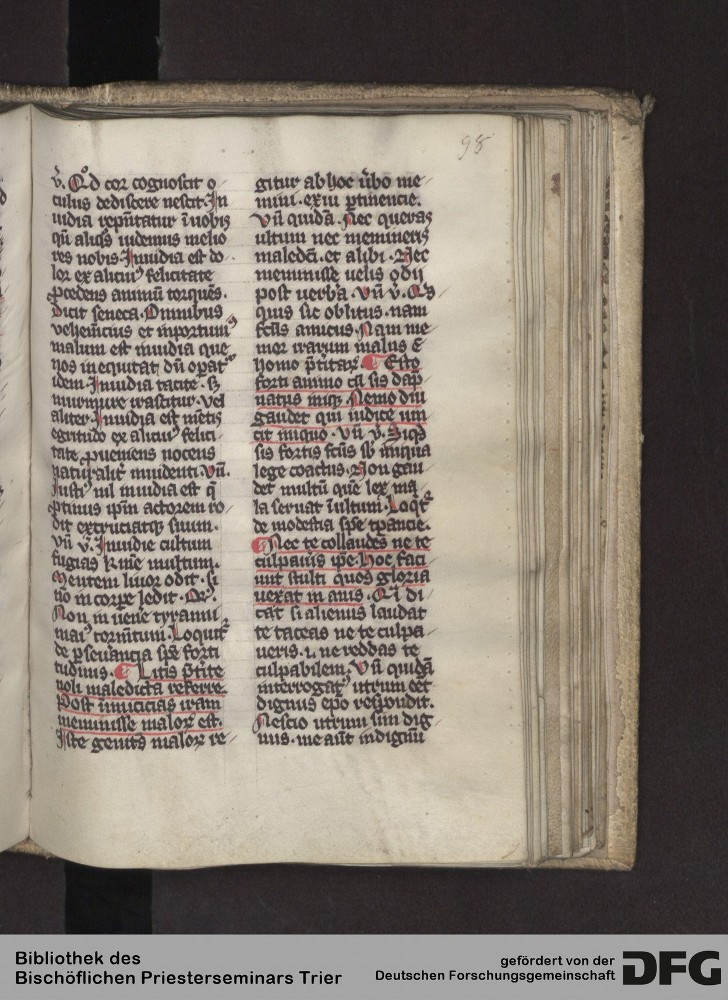 98
v̄. Qd̊ cor cognoscit o
culus dediscere nescit. In
uidia reputatur ī uobis
qn̄ aliq̄s uidemus melio
res nobis. Inuidia est do
lor ex aliciꝰ felicitate
ꝓcedens animū torquēs.
dicit seneca. Omnibus
vehemēcius et inportuniꝰ
malum est inuidia que
nos inequitat dū opatᷣ
idem. Inuidia tacite. sꝫ
murmure irascitur. vel
aliter. Inuidia est mētis
egritudo ex alicuiꝰ felici
tate ꝓueniens nocens
naturalit̄ inuidenti. vn̄.
Iustiꝰ nil inuidia est q̄
ꝓtinus ip̄m actorem ro
dit excruciatqꝫ suum.
vn̄ v̄. Inuidie cultum
fugias
Mentem liuor odit. si
nō in corꝑe ledit.
Non inuenere tyranni
maiꝰ tormētum. Loquitᷣ
de ꝑseuāncia spē forti
tudinis. ¶ Litis p̄t̄ite
noli maledicta referre
Post inimicicias iram
meminisse maloꝝ est.
Iste geniti᷒ maloꝝ re
gitur ab hoc ūbo me
mini. exiu ꝑtinencie.
vn̄ quidā. Nec queras
ultum nec memineris
maledc̄i. et alibi. Nec
meminisse uelis odij
post uerba. vn̄ v̄.
quis sic oblitus. nam
fc̄us amicus. Nam me
mor irarum malus ē
homo p̄t̄itaꝝ. ¶ Esto
forti animo cū sis dāp
natus iniqꝫ. Nemo diu
gaudet qui iudice uin
cit iniquo. vn̄ v̄. Siqꝫ
sis fortis fc̄us sb̄ iniqua
lege coactus. Non gau
det multū quē lex ma
la seruat ī ultum. Loqitᷣ
de modestia spē tꝑancie.
¶ Nec te collaudes ne te
culpaūis ip̄e. Hoc faci
unt stulti quos gloria
uexat inanis. Q̄i di
cat si alienus laudat
te taceas ne te culpa
ueris. i. ne reddas te
culpabilem. vn̄ quidā
interrogatᷣ utrum eēt
dignus ep̄o respondit.
Nescio utrum sim dig
nus. me aūt indignū
Bibliothek des
Bischöflichen Priesterseminars Trier
gefördert von der
Deutschen Forschungsgemeinschaft
DFG